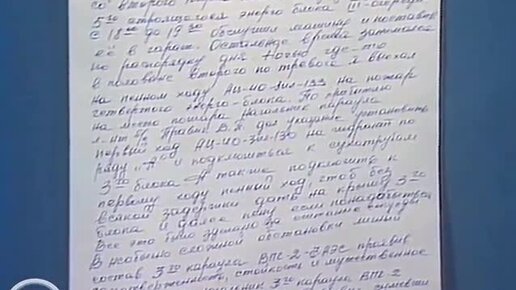 со второго
5 го строящегося энерго блока III очереди
с 18 00 до 19 30 обслужил машину и поставил
её в гараж. Остальное время занимался
по распорядку дня. Ночью где-то
в половине второго по тревоге я выехал
на пенном ходу АЦ-40 ЗИЛ-133 на пожар
четвёртого энерго-блока. По прибытию
на место пожара начальник караула
л-нт Правик В.П. дал указание установить
первый ход АЦ-40-ЗИЛ-130 на гидрант по
ряду и подключиться к сухотрубам
3 го блока А так же подключить к
первому ходу пенный ход, чтоб без
всякой задержки дать на крышу 3 го
блока и далее пену если понадобиться
Всё это было сделано за
В особенно сложной обстановке личный
состав 3 го караула ВПЧ-2 ЧАЭС проявив
стойкость и мужественное
3 го караула ВПЧ-2